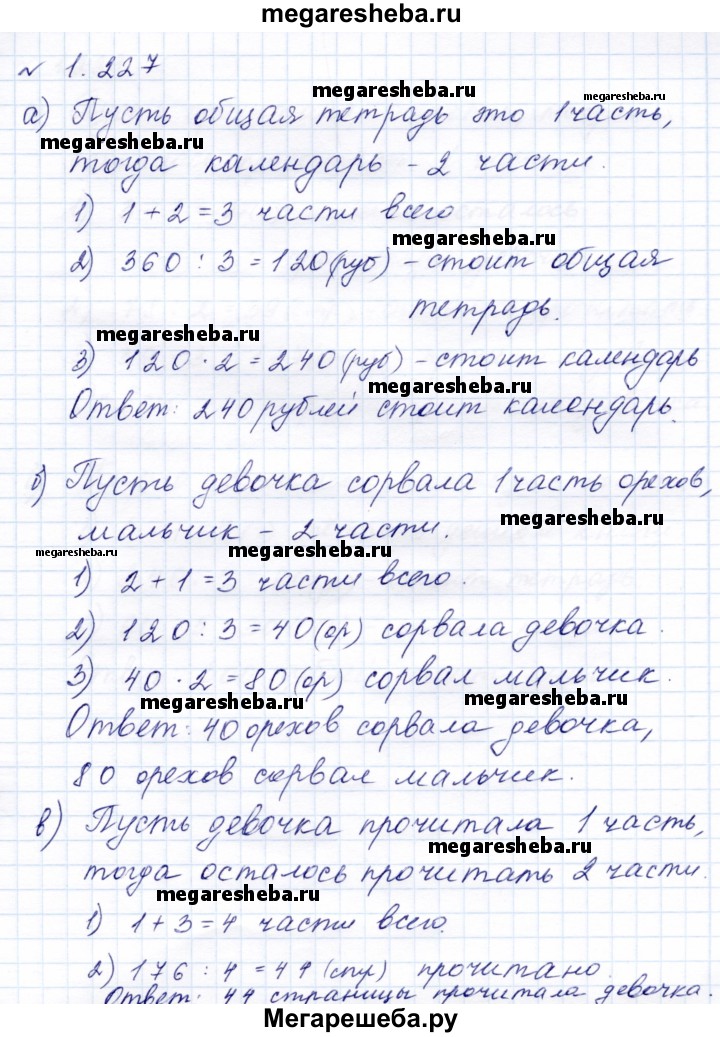 megaresheba.ru
№ 1.227
megaresheba.ru
megaresheba.ru
а) Пусть общая тетрадь это 1 часть,
megaresheba.ru
тогда календарь - 2 части.
1) 1 + 2 = 3 части всего
megaresheba.ru
2) 360 : 3 = 120 (руб) - стоит общая
тетрадь.
megaresheba.ru
3) 120 · 2 = 240 (руб) - стоит календарь
megaresheba.ru
Ответ: 240 рублей стоит календарь.
б) Пусть девочка сорвала 1 часть орехов,
megaresheba.ru
мальчик - 2 части.
megaresheba.ru
megaresheba.ru
1) 2 + 1 = 3 части всего.
2) 120 : 3 = 40 (ор) сорвала девочка.
3) 40 · 2 = 80 (ор) сорвал мальчик.
megaresheba.ru
megaresheba.ru
Ответ: 40 орехов сорвала девочка,
80 орехов сорвал мальчик.
в) Пусть девочка прочитала 1 часть,
megaresheba.ru
тогда осталось прочитать 2 части.
megaresheba.ru
1) 1 + 3 = 4 части всего.
2) 176 : 4 = 44 (стр) прочитано.
Ответ: 44 страницы прочитала девочка.
Мегарешеба.ру